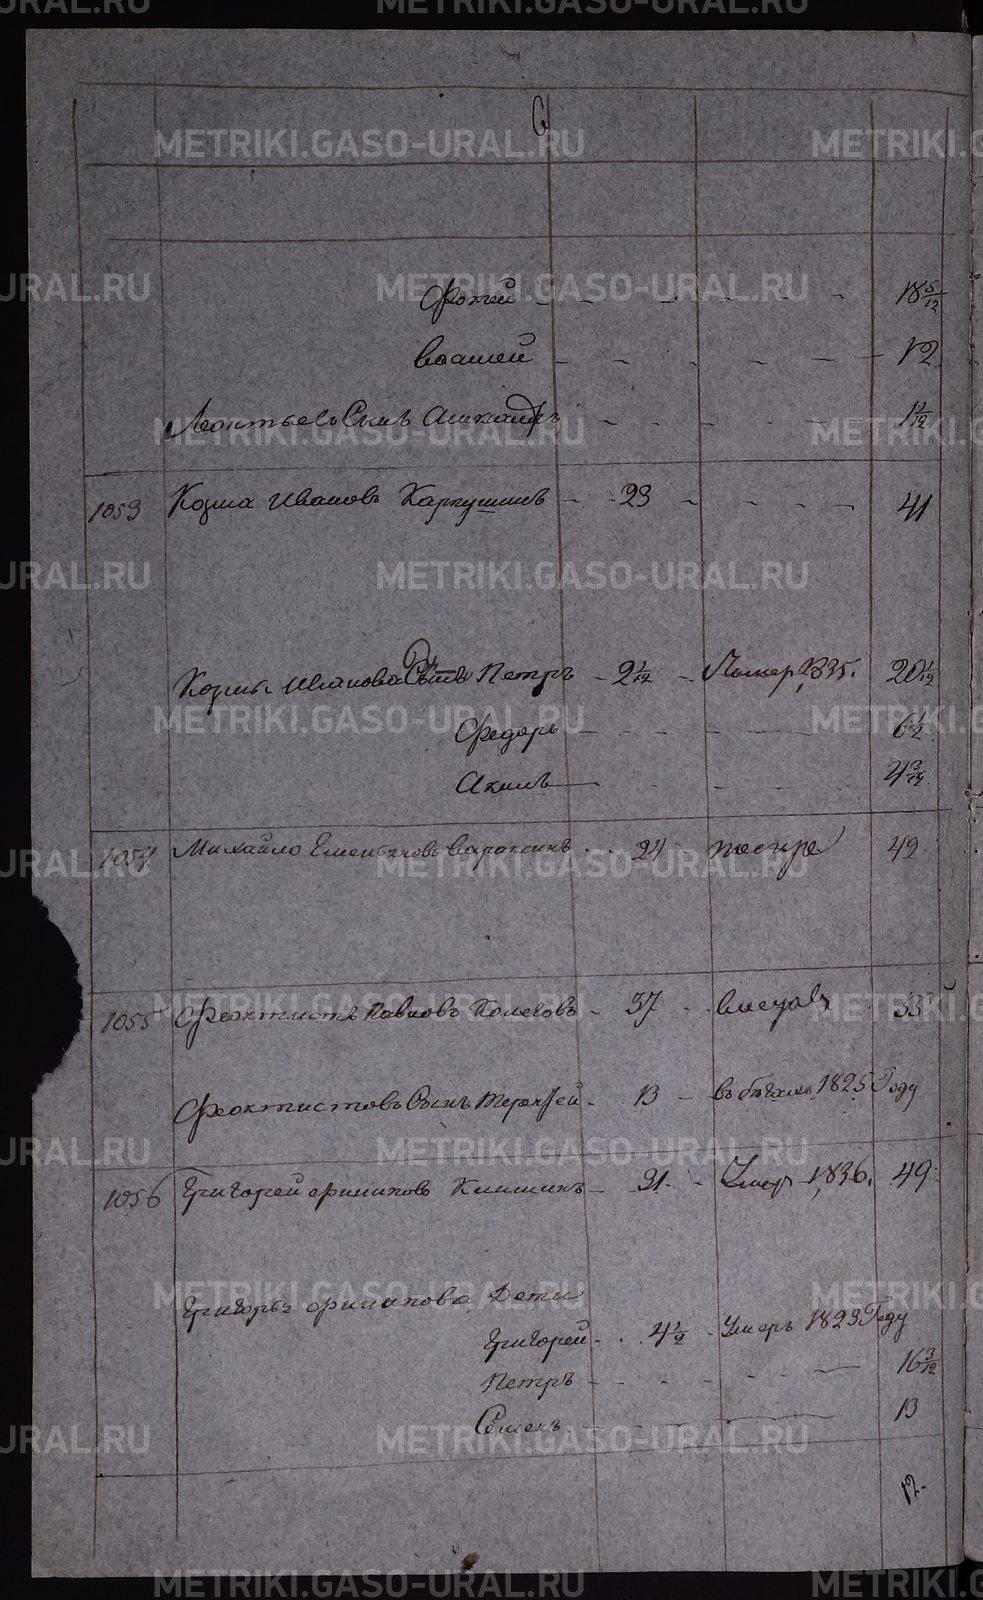 Фотей - - - - - 18 5/12
Василей - - - - - 12
Леонтьевъ Сынъ Александръ - - - - 1 1/12
1053 Козма Ивановъ Карпушинъ - 23 - - - - 41
Козмы Иванова Сынъ Петръ - 2 1/12 - Помер, 1835. 20 1/12
Федоръ - - - - 6 1/2
Акимъ - - - 4 3/12
1054 Михайло Емельяновъ Вараксинъ - 24 49
1055 Феоктистъ Павловъ Колесовъ - 37 -
Феоктистовъ Сынъ - 13 - въ бегахъ 1825 Году
1056 Григорей Филиповъ Климинъ - 31. - Умер 1836. 49
Григорья Филипова Дети
Григорей - 4 1/2 - Умеръ 1823 Году
Петръ - - - - - 16 3/12
Семенъ 13
12.
METRIKI.GASO-URAL.RU